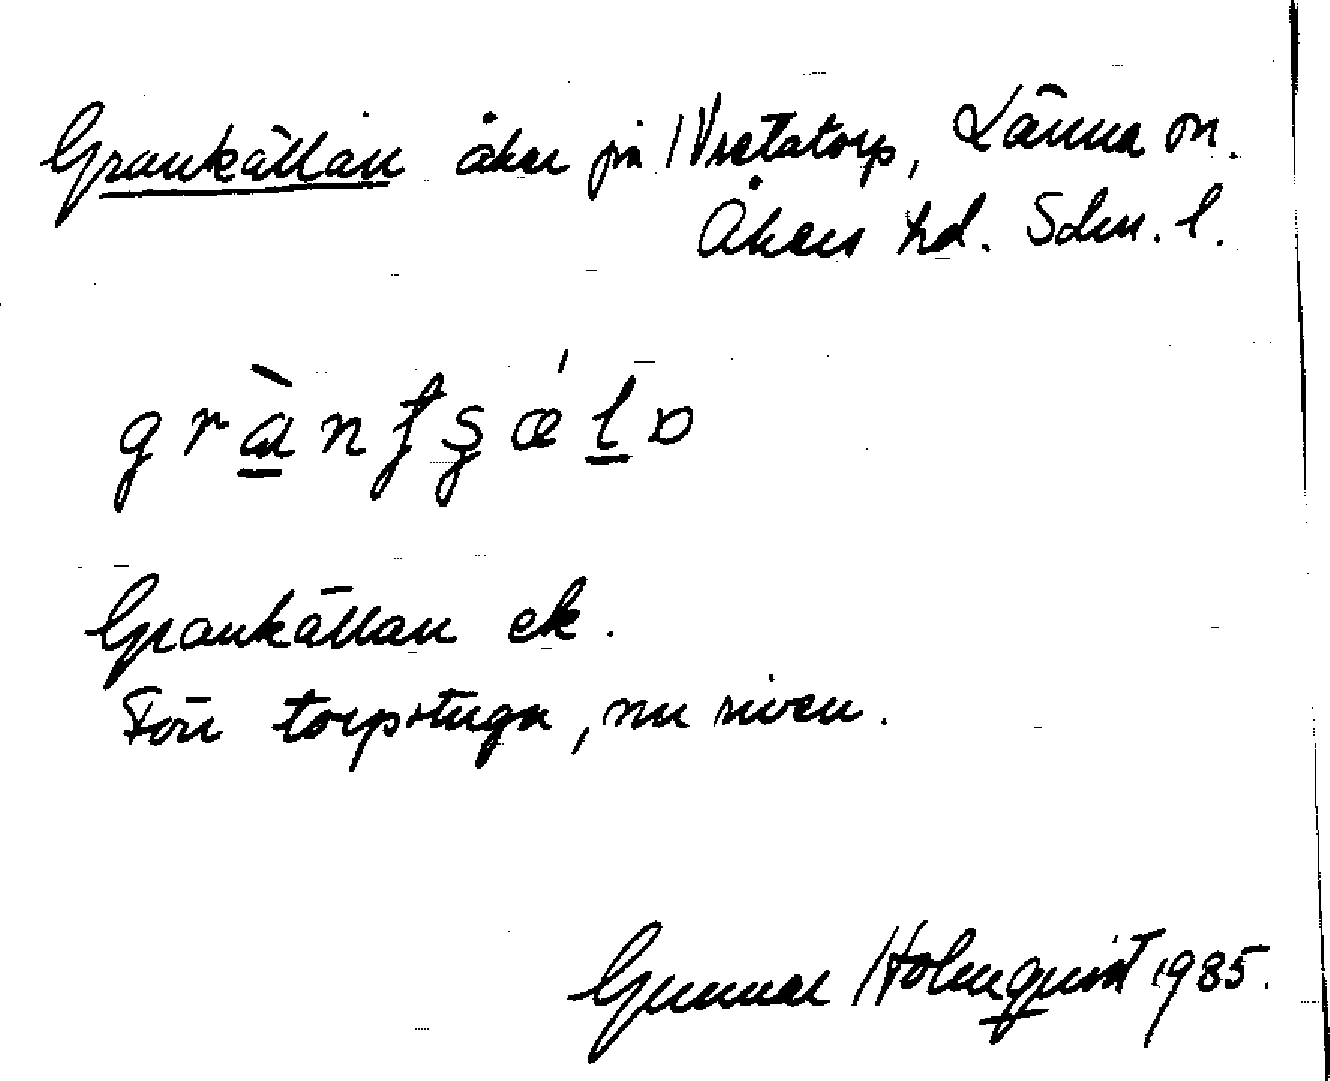 Grankällan åker på Vretatorp, Länna sn.
Åkers hd. Sdm. l.
grànt̠şǽlo
Grankällan ek.
Förr torpstuga, nu riven.
Gunnar Holmquist 1985.